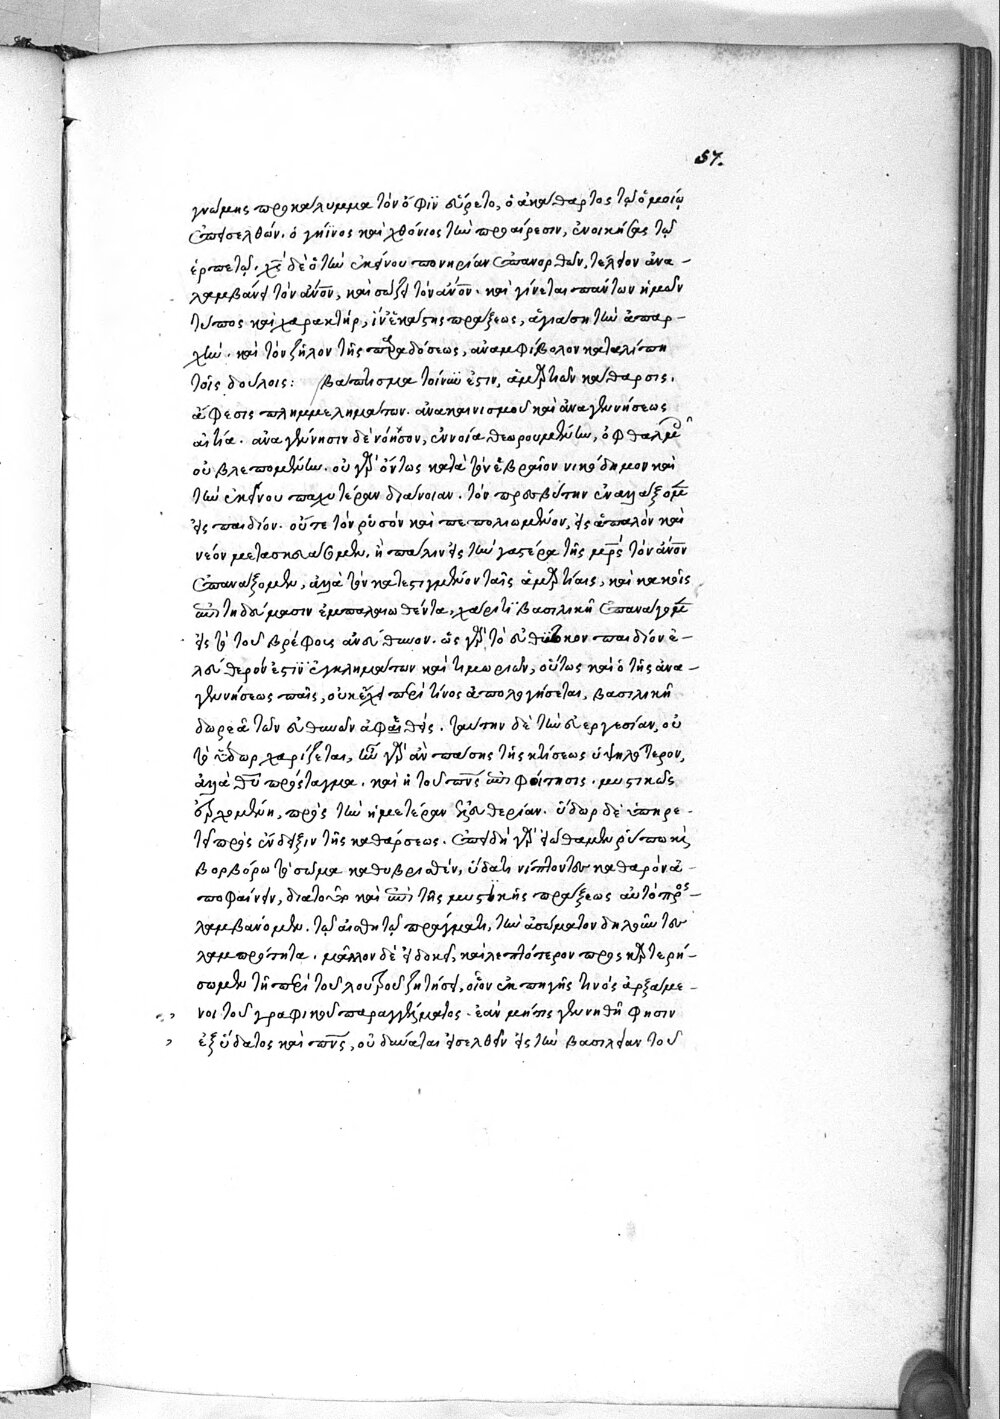 57.
γνώμης προκάλυμμα τὸν ὄφιν εὕρετο, ὁ ἀκάθαρτος τῷ ὁμοίῳ
ἐπεισελθών. ὁ γήϊνος καὶ χθόνιος τὴν προαίρεσιν, ἐνοικήσας τῷ
ἑρπετῷ. χς δὲ ὁ τὴν ἐκείνου πονηρίαν ἐπανορθῶν, τέλειον ἀνα-
λαμβάνει τὸν ἄνον, καὶ σώζει τὸν ἄνον. καὶ γίνεται πάντων ἡμῶν
τύπος καὶ χαρακτήρ, ἵν ἑκάστης πράξεως, ἁγιάσῃ τὴν ἀπαρ-
χήν. καὶ τὸν ζῆλον τῆς παραδόσεως, ἀναμφίβολον καταλίπῃ
τοῖς δούλοις: βάπτισμα τοίνυν ἐστὶν, ἁμαρτιῶν κάθαρσις.
ἄφεσις πλημμελημάτων. ἀνακαινισμοῦ καὶ ἀναγεννήσεως
αἰτία. ἀναγέννησιν δὲ νόησον, ἐννοία θεωρουμένην, ὀφθαλμοῖς
οὐ βλεπομένην. οὐ γὰρ ὄντως κατὰ τὸν ἑβραῖον νικόδημον καὶ
τὴν ἐκείνου παχυτέραν διάνοιαν. τὸν πρεσβύτην ἐναλλάξομεν
εἰς παιδίον. οὔτε τὸν ῥυσὸν καὶ πεπολιωμένον, εἰς ἁπαλὸν καὶ
νέον μετασκευάσομεν. ἢ πάλιν εἰς τὴν γαστέρα τῆς μρς τὸν ἄνον
ἐπανάξομεν, ἀλλὰ τὸν κατεστιγμένον ταῖς ἁμαρτίαις, καὶ κακοῖς
ἐπιτηδεύμασιν ἐμπαλαιωθέντα, χάριτι βασιλικῇ ἐπανάγομεν
εἰς τὸ τοῦ βρέφους ἀνεύθυνον. ὡς γὰρ τὸ εὐθύτοκον παιδίον ἐ-
λεύθερόν ἐστιν ἐγκλημάτων καὶ τιμωριῶν, οὕτως καὶ ὁ τῆς ἀνα-
γεννήσεως παῖς, οὐκ ἔχει περὶ τίνος ἀπολογήσεται, βασιλικῇ
δωρεᾷ τῶν εὐθυνῶν ἀφαιθείς. ταύτην δὲ τὴν εὐεργεσίαν, οὐ
τὸ ὕδωρ χαρίζεται, ἦν γὰρ ἂν πάσης τῆς κτίσεως ὑψηλότερον,
ἀλλὰ θυ πρόσταγμα. καὶ ἡ τοῦ πνς ἐπιφοίτησις. μυστικῶς
ἐρχομένη, πρὸς τὴν ἡμετέραν ἐλευθερίαν. ὕδωρ δὲ ὑπηρε-
τεῖ πρὸς ἔνδειξιν τῆς καθάρσεως. ἐπειδὴ γὰρ εἰώθαμεν ῥύπῳ καὶ
βορβόρῳ τὸ σῶμα καθυβρισθὲν, ὕδατι νίπτοντες καθαρὸν ἀ-
ποφαίνειν, διατοῦτο καὶ ἐπὶ τῆς μυστικῆς πράξεως αὐτὸ προς-
λαμβάνομεν. τῷ αἰσθητῷ πράγματι, τὴν ἀσώματον δηλοῦντες
λαμπρότητα. μᾶλλον δὲ εἰ δοκεῖ, καὶ λεπτότερον προσκαρτερή-
σωμεν τῇ περὶ τοῦ λουτροῦ ζητήσει, οἷον ἐκ πηγῆς τινὸς ἀρξάμε-
νοι τοῦ γραφικοῦ παραγγέλματος. ἐὰν μήτις γεννηθῇ φησιν
ἐξ ὕδατος καὶ πνς, οὐ δύναται εἰσελθεῖν εἰς τὴν βασιλείαν τοῦ